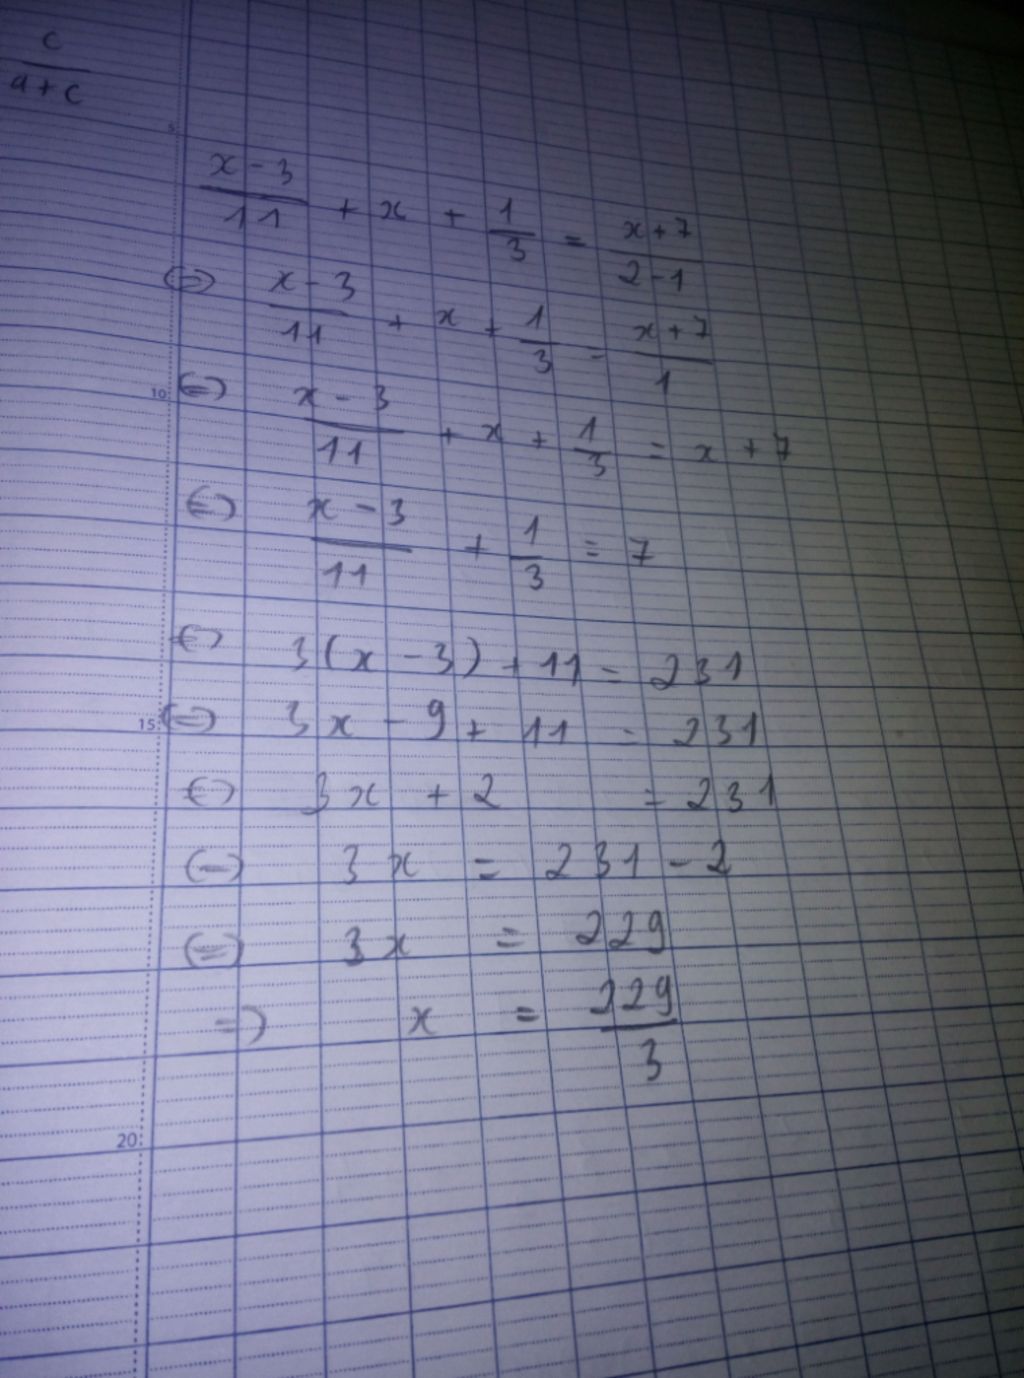 c
a+c
5
x-3/11 + x + 1/3 = x+7/2-1
(=) x-3/11 + x + 1/3 = x+7/1
10 (=) x-3/11 + x + 1/3 = x+7
(=) x-3/11 + 1/3 = 7
(=) 3(x-3)+11 = 231
15 (=) 3x-9+11 = 231
(=) 3x+2 = 231
(=) 3x = 231-2
(=) 3x = 229
=) x = 229/3
20